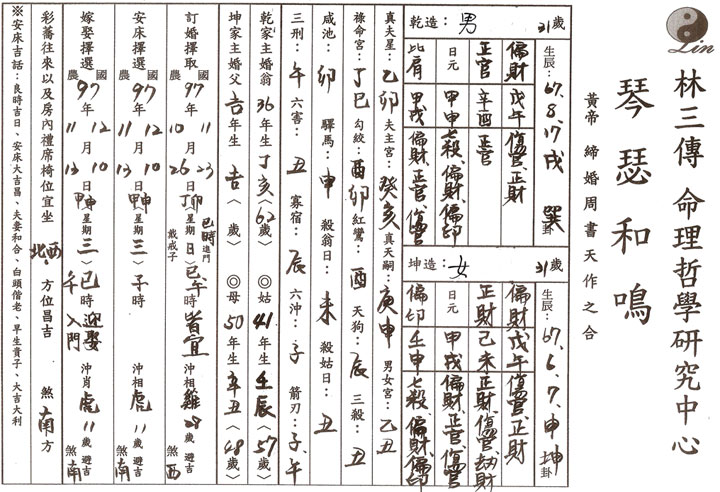 Lin
林三傳 命理哲學研究中心
琴瑟和鳴
黃帝 締婚周書天作之合
乾造：男 31歲
生辰：67.8.17 戌 巽卦
偏財 戊午 傷官、正財
正官 辛酉 正官
日元 甲申 七殺、偏財、偏印
比肩 甲戌 偏財、正官、傷官
坤造：女 31歲
生辰：67.6.7.申 坤卦
偏財 戊午 傷官、正財
正財 己未 正財、傷官、劫財
日元 甲戌 偏財、正官、傷官
偏印 壬申 七殺、偏財、偏印
真夫星：乙卯 夫主宮：癸亥 真天嗣：庚申 男女宮：乙丑
祿命宮：丁巳 勾絞：酉卯 紅鸞：酉 天狗：辰 三殺：丑
咸池：卯 驛馬：申 殺翁日：未 殺姑日：丑
三刑：午 六害：丑 寡宿：辰 六沖：子 箭刃：子、午
乾家主婚翁 36年生 丁亥〈62歲〉 ◎姑 41年生 壬辰〈57歲〉
坤家主婚父 吉年生 吉〈 歲〉 ◎母 50年生 辛丑〈48歲〉
訂婚擇取 農國97年 10 11月 26 23日 丁卯〈星期日〉 巳時進門 戴戒子 巳、午時 皆宜 沖相雞28歲 避吉 煞西
安床擇選 農國97年 11 12月 13 10日 甲申〈星期三〉子時 沖相虎11歲 避吉 煞南
嫁娶擇選 農國97年 11 12月 13 10日 甲申〈星期三〉巳時迎娶 午時入門 沖肖虎11歲 避吉 煞南
彩蕃往來以及房內禮席椅位宜坐 西、北 方位昌吉 煞南方
※安床吉話：良時吉日、安床大吉昌、夫妻和合、白頭偕老、早生貴子、大吉大利